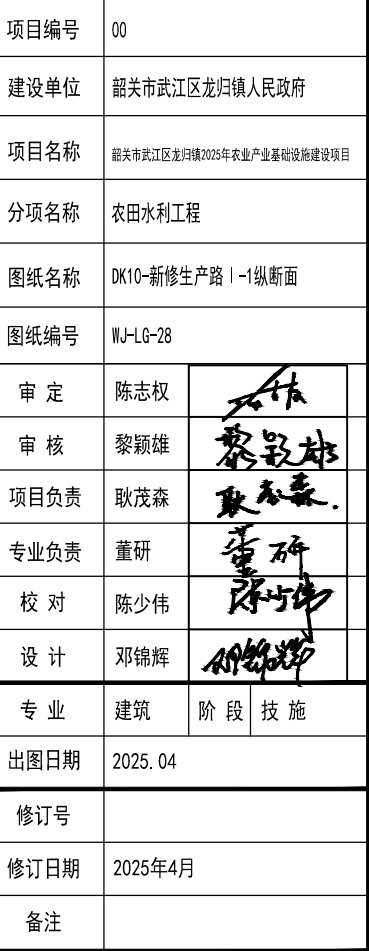 项目编号 00
建设单位 韶关市武江区龙归镇人民政府
项目名称 韶关市武江区龙归镇2025年农业产业基础设施建设项目
分项名称 农田水利工程
图纸名称 DK10-新修生产路Ⅰ-1纵断面
图纸编号 WJ-LG-28
审 定 陈志权
审 核 黎颖雄 黎颖雄
项目负责 耿茂森 耿茂森.
专业负责 董研 董研
校 对 陈少伟 陈少伟
设 计 邓锦辉 邓锦辉
专 业 建筑 阶 段 技 施
出图日期 2025.04
修订号
修订日期 2025年4月
备注